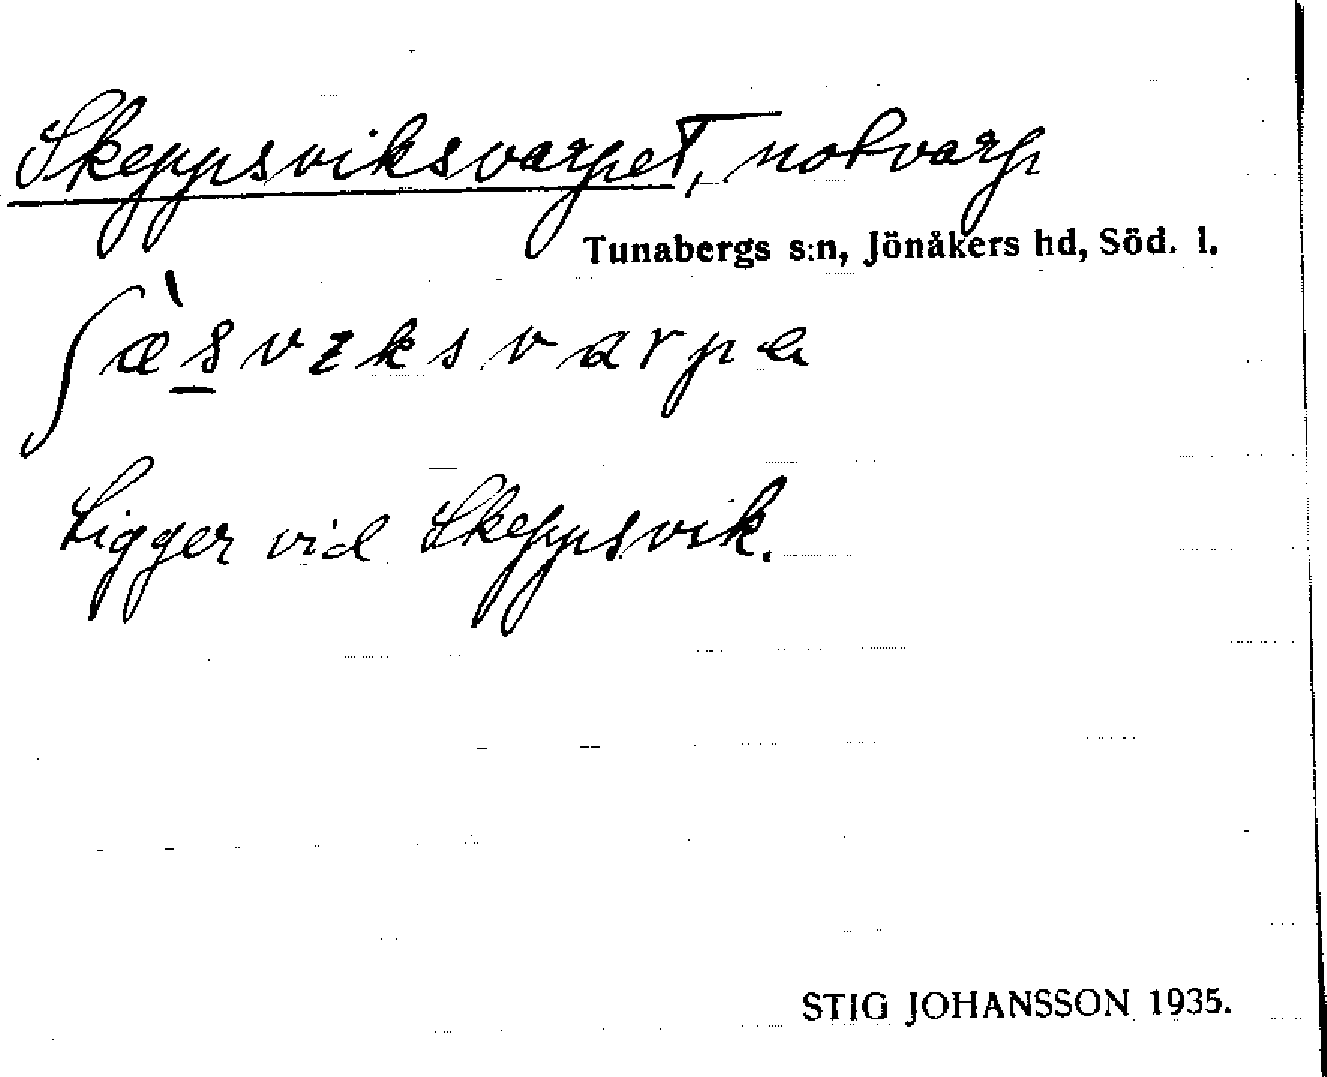 Skeppsviksvarpet, notvarp
Tunabergs s:n, Jönåkers hd, Söd. l.
ʃæ̀s̲vɪksvarpə
Ligger vid Skeppsvik.
STIG JOHANSSON 1935.